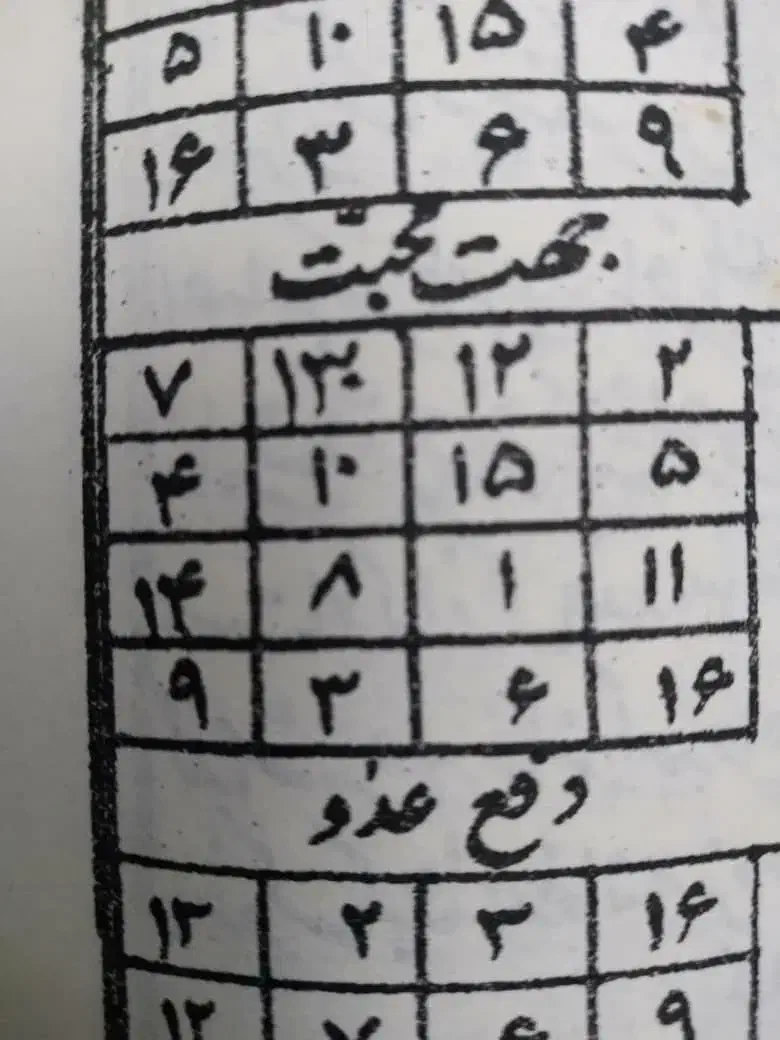 ۴ ۱۵ ۱۰ ۵
۹ ۶ ۳ ۱۶
بجهت محبّت
۲ ۱۲ ۱۳ ۷
۵ ۱۵ ۱۰ ۴
۱۱ ۱ ۸ ۱۴
۱۶ ۶ ۳ ۹
دفع عدو
۱۶ ۳ ۲ ۱۳
۹ ۶ ۷ ۱۲